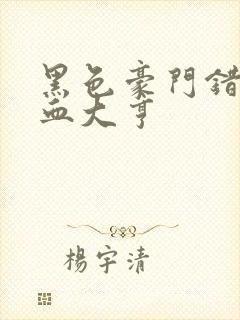 黑色豪門錯
血大亨
楊宇清